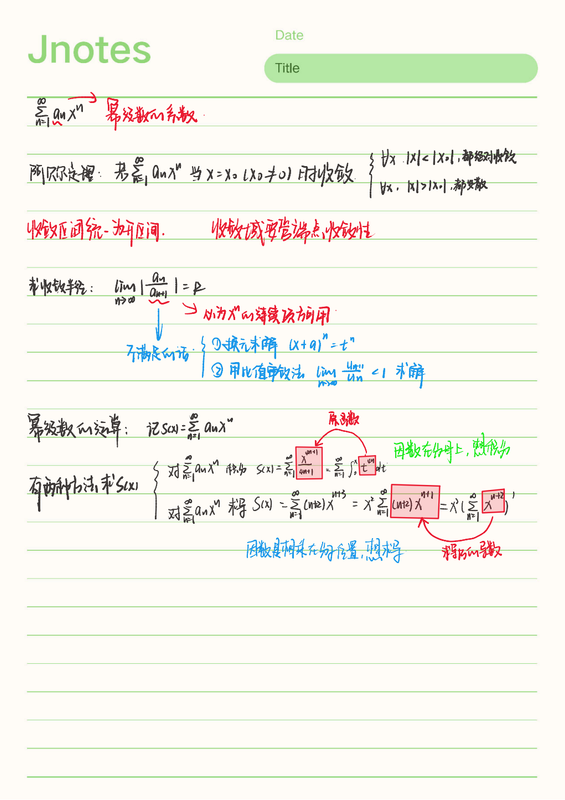 Jnotes
Date
Title
∑_{n=1}^{∞} aₙxⁿ → 幂级数的系数.
阿贝尔定理: 若∑_{n=1}^{∞} aₙxⁿ 当 x=x₀ (x₀≠0) 时收敛
∀x, |x|<|x₀|, 都绝对收敛
∀x, |x|>|x₀|, 都发散
收敛区间统一为开区间. 收敛域要管端点收敛性
求收敛半径: lim_{n→∞} |aₙ/aₙ₊₁| = R
必为xⁿ的连续项方可用
不满足的话:
①换元求解 (x+a)ⁿ=tⁿ
②用比值审敛法 lim_{n→∞} uₙ₊₁/uₙ <1 求解
幂级数的运算: 记S(x)=∑_{n=1}^{∞} aₙxⁿ
原函数
因数在分母上,想积分
有两种方法求S(x)
对∑_{n=1}^{∞} aₙxⁿ 积分 S(x)=∑_{n=1}^{∞}
对∑_{n=1}^{∞} aₙxⁿ 求导 S(x)=∑_{n=1}^{∞}(n+2)xⁿ⁺³ = x²∑_{n=1}^{∞}(n+2)xⁿ⁺¹ = x²(∑_{n=1}^{∞} xⁿ⁺²)'
因数是相乘在分子位置,想求导
求导后的导数